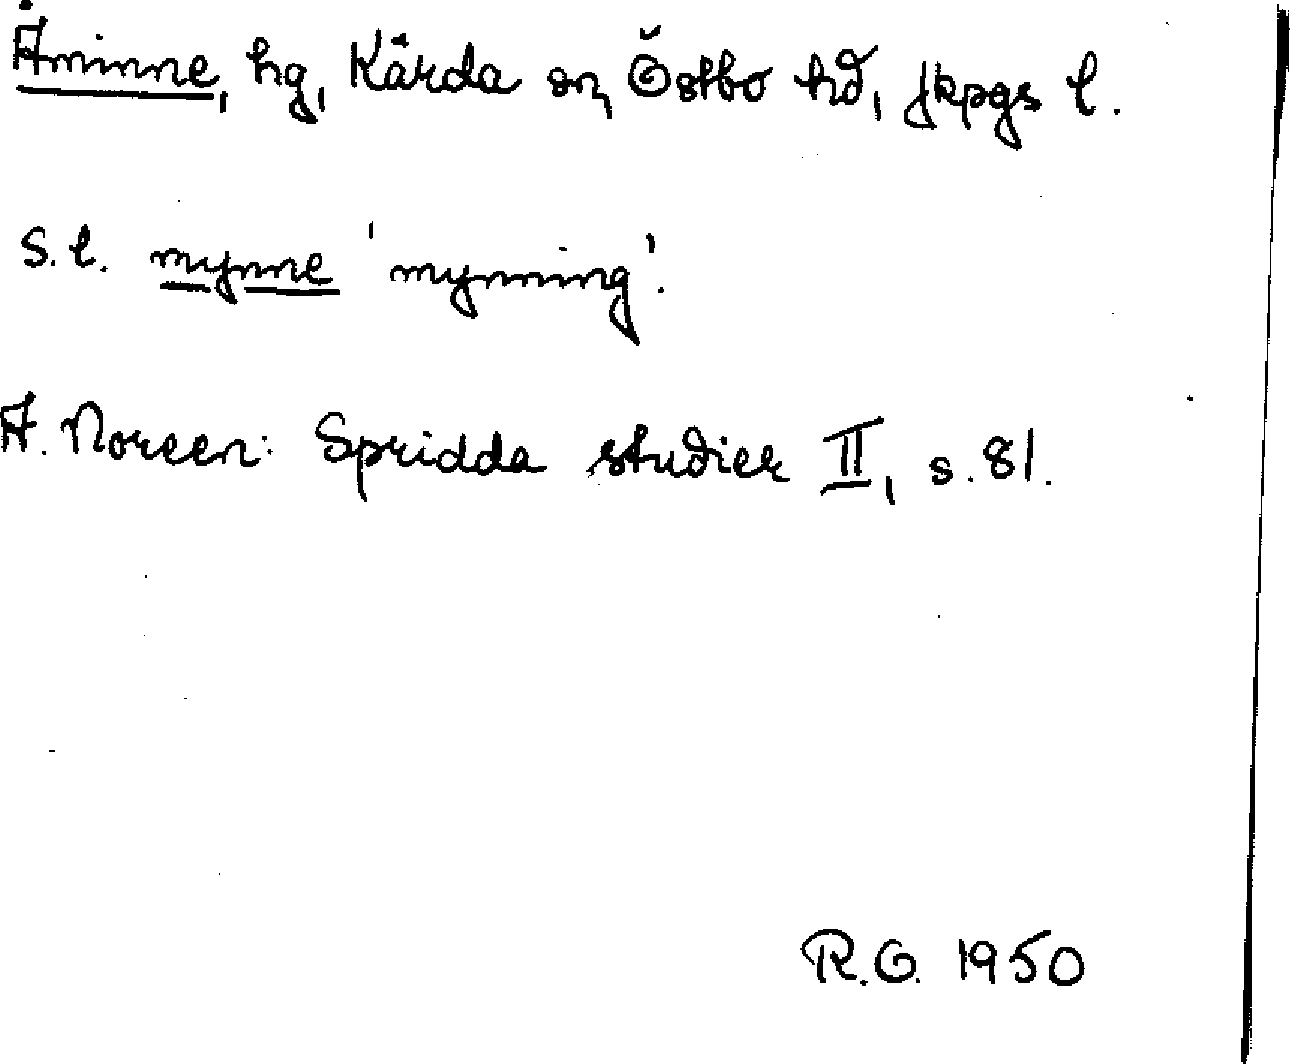 Åminne, hg, Kärda sn, Östbo hd, Jkpgs l.
S.l. mynne 'mynning'.
A. Noreen: Spridda studier II, s. 81.
R.G. 1950